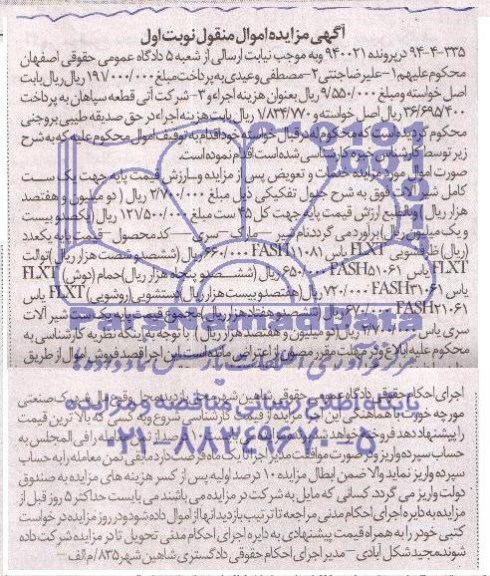 آگهی مزایده اموال منقول نوبت اول
۹۴-۴-۳۳۵ در پرونده ۹۴۰۰۲۱ و به موجب نیابت ارسالی از شعبه ۵ دادگاه عمومی حقوقی اصفهان
محکوم علیهم ۱-علیرضا جنتی ۲-مصطفی وعیدی به پرداخت مبلغ ۱۹۷/۰۰۰/۰۰۰ ریال بابت
اصل خواسته و مبلغ ۹/۵۵۰/۰۰۰ ریال بعنوان هزینه اجراء و ۳-شرکت آتی قطعه سپاهان به پرداخت
۳۶/۶۹۵/۴۰۰ ریال اصل خواسته و ۱/۸۳۴/۷۷۰ ریال بابت هزینه اجراء در حق صدیقه طیبی بروجنی
محکوم گردیده است که محکوم له در قبال خواسته خود اقدام به توقیف اموال محکوم علیه که به شرح
زیر توسط کارشناس خبره کارشناسی شده است اقدام نموده است.
صورت اموال مورد مزایده خدمات و تعویض پس از مزایده و ارزش قیمت پایه جهت یک ست
کامل شیرآلات فوق به شرح جدول تفکیکی ذیل مبلغ ۲/۷۰۰/۰۰۰ ریال (دو میلیون و هفتصد
هزار ریال) و بالطبع ارزش قیمت پایه جهت کل ۴۵ ست مبلغ ۱۲۱/۵۰۰/۰۰۰ ریال (یکصد و بیست
و یک میلیون ریال) برآورد می گردد نام شیر – مارک – سری – کد محصول – قیمت پایه یکعدد
(ریال) ظرفشویی FLXT یاس FASH ۱۱۰۸۱ ۶۶۰/۰۰۰ ریال (ششصد و شصت هزار ریال) توالت
FLXT یاس FASH۵۱۰۶۱ ۶۵۰/۰۰۰ ریال (ششصد و پنجاه هزار ریال) حمام (دوش) FLXT
یاس FASH۳۱۰۶۱ ۷۲۰/۰۰۰ ریال (هفتصد و بیست هزار ریال) دستشویی (روشویی) FLXT یاس
FASH۲۱۰۶۱ ۶۷۰/۰۰۰ ریال (ششصد و هفتاد هزار ریال) مجموع قیمت پایه یک ست شیرآلات
سری یاس ۲/۷۰۰/۰۰۰ ریال (دو میلیون و هفتصد هزار ریال) با توجه به اینکه نظریه کارشناسی به
محکوم علیه ابلاغ و در مهلت مقرر مصون از اعتراض مانده است این اجرا قصد فروش اموال از طریق
اجرای احکام حقوقی دادگاه عمومی حقوقی شاهین شهر محل وقوع مال شهرک صنعتی
مورچه خورت با هماهنگی این اجرا مزایده از قیمت کارشناسی شروع و به کسی که بالاترین قیمت
را پیشنهاد دهد فروخته خواهد شد فی المجلس به
حساب سپرده واریز و در صورت موافقت مدیر اجرا تا یک ماه فرصت دارد مابقی ثمن معامله را به حساب
سپرده واریز نماید والا ضمن ابطال مزایده ۱۰ درصد اولیه پس از کسر هزینه های مزایده به صندوق
دولت واریز می گردد. کسانی که مایل به شرکت در مزایده می باشند می بایست حداکثر ۵ روز قبل از
مزایده به دایره اجرای احکام مدنی مراجعه تا ترتیب بازدید آنها از اموال داده شود و در روز مزایده درخواست
کتبی خود را به همراه قیمت پیشنهادی به دایره اجرای احکام مدنی تحویل تا در مزایده شرکت داده
شوند مجید شکل آبادی – مدیر اجرای احکام حقوقی دادگستری شاهین شهر ۸۳۵/م الف –
ParsNamadData
مرکز فرآوری اطلاعات پارس نماد داده ها
پایگاه اطلاع رسانی مناقصه و مزایده
۰۲۱-۸۸۳۴۹۶۷۰-۵